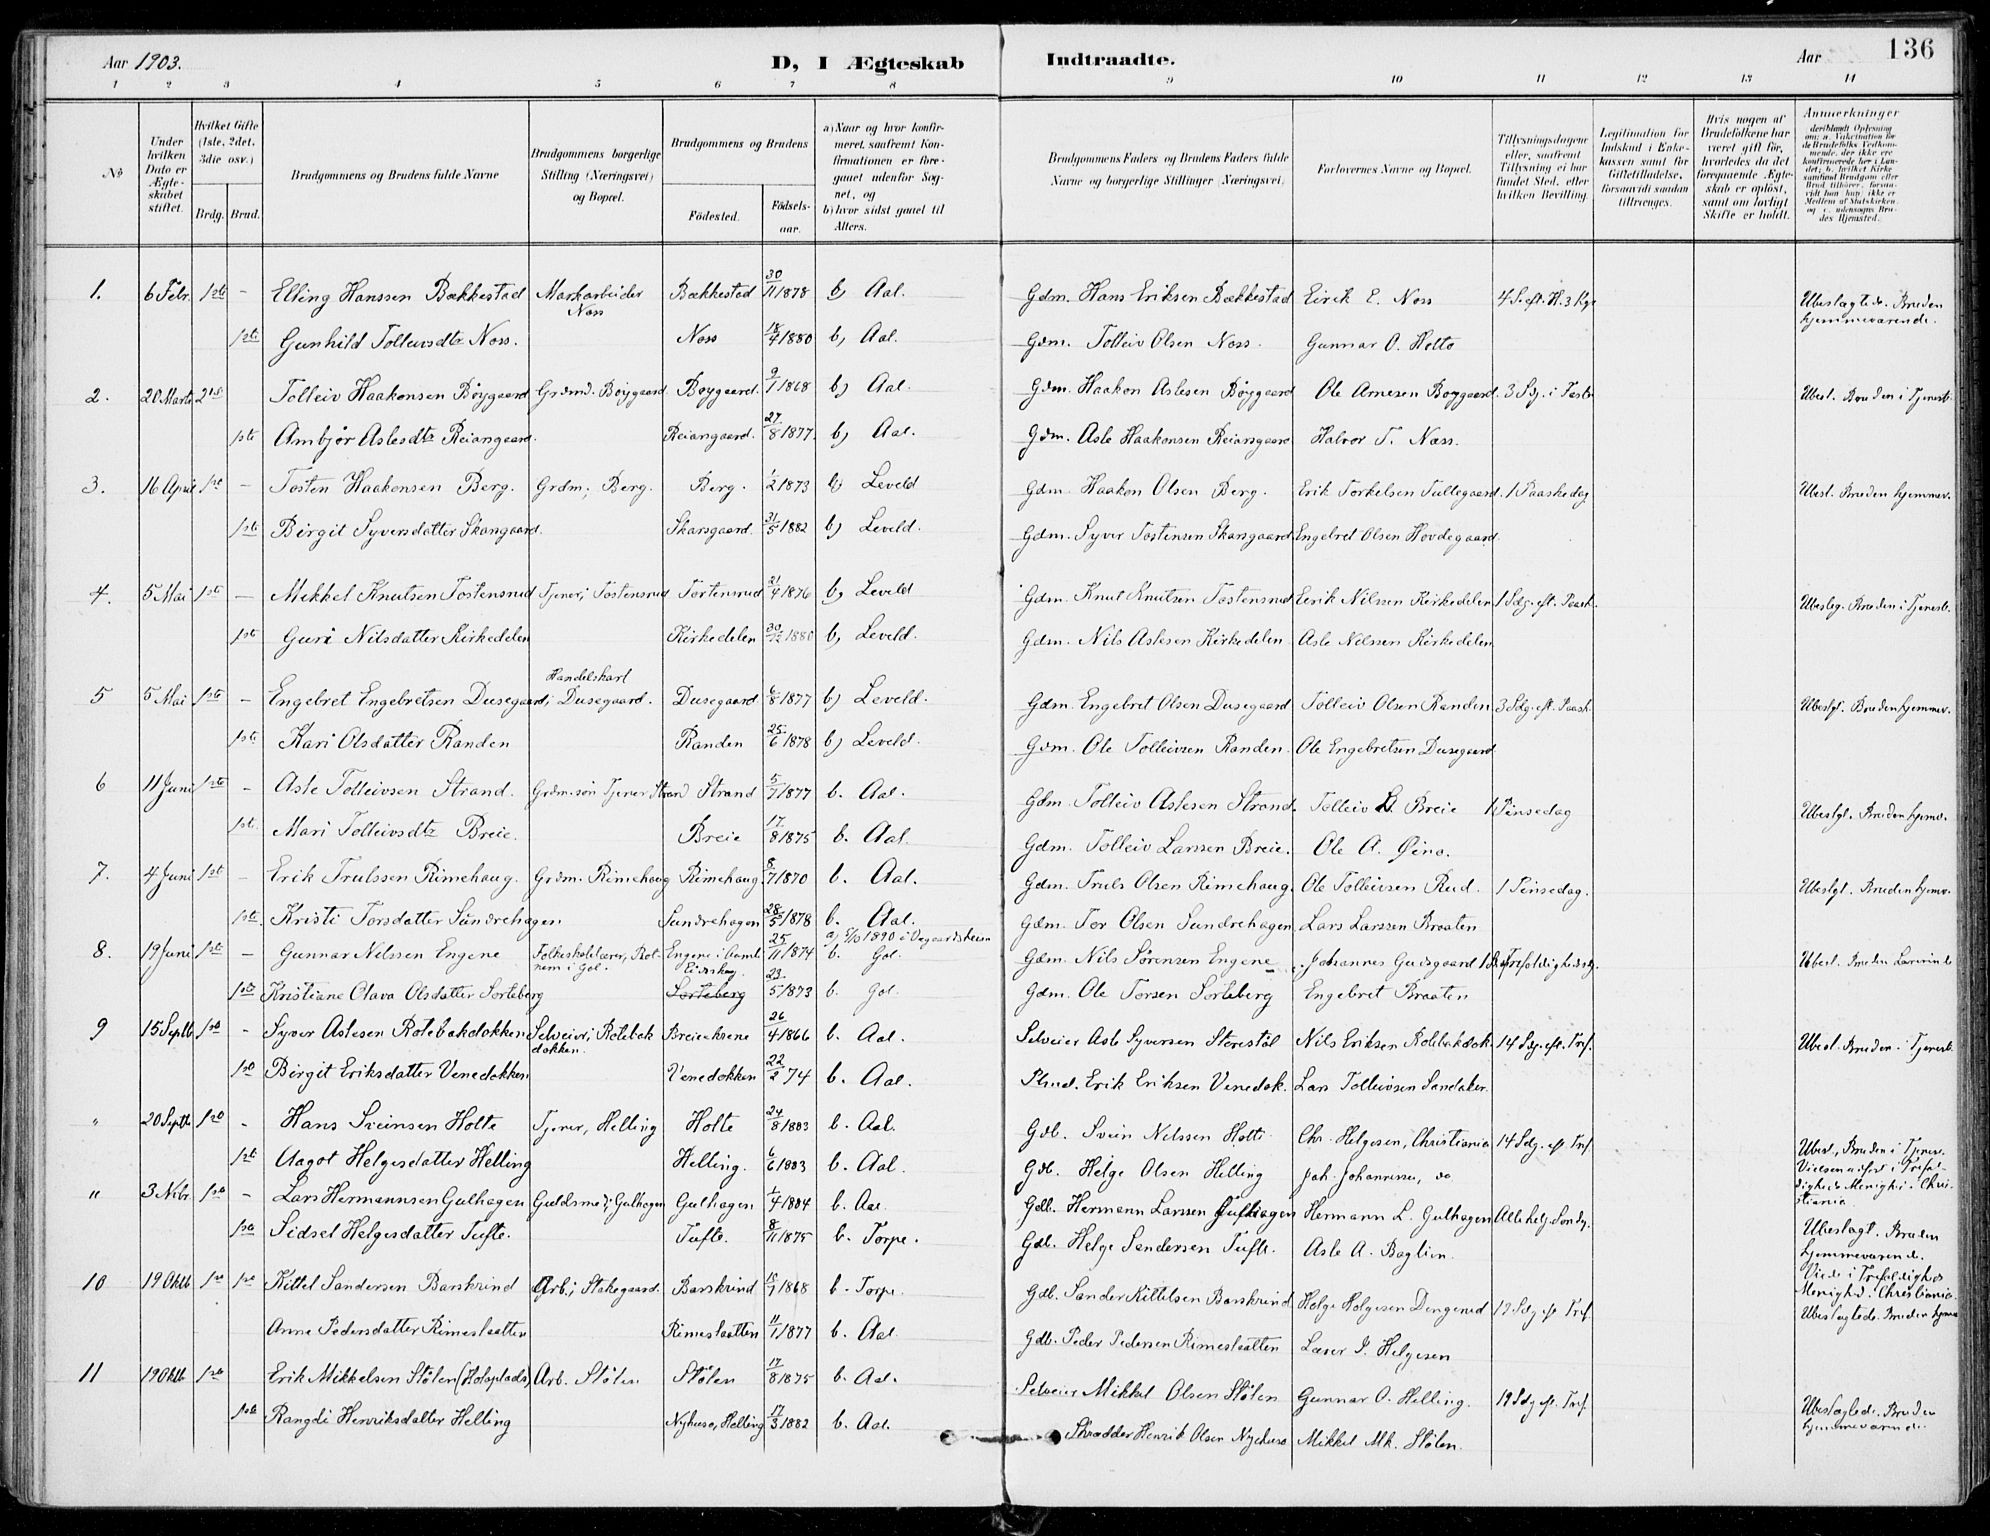 Aar 1903. D, I Ægteskab Indtraadte. Aar 136
1 2 3 4 5 6 7 8 9 10 11 12 13 14
No
Under hvilken Dato er Ægteskabet stiftet.
Hvilket Gifte (1ste, 2det, 3die osv.)
Brdg. Brud.
Brudgommens og Brudens fulde Navne
Brudgommens borgerlige Stilling (Næringsvei) og Bopæl.
Brudgommens og Brudens
Fødested. Fødselsaar.
a) Naar og hvor konfirmeret, saafremt Konfirmationen er foregaaet udenfor Sognet, og
b) hvor sidst gaaet til Alters.
Brudgommens Faders og Brudens Faders fulde Navne og borgerlige Stillinger (Næringsvei)
Forlovernes Navne og Bopæl.
Tillysningsdagene eller, saafremt Tillysning ei har fundet Sted, efter hvilken Bevilling.
Legitimation for Indskud i Enkekassen samt for Giftetilladelse, forsaavidt saadan tiltrænges.
Hvis nogen af Brudefolkene har været gift før, hvorledes da det foregaaende Ægteskab er opløst, samt om lovligt Skifte er holdt.
Anmærkninger
deriblandt Oplysning om: a. Vakcination for de Brudefolks Vedkommende, der ikke ere konfirmerede her i Landet; b. hvilket Kirkesamfund Brudgom eller Brud tilhører, forsaavidt han, hun, ikke er Medlem af Statskirken, og c. udensogns Brudes Hjemsted.
1. 6 Febr. 1ste - Elling Hanssen Bækkestad Markarbeider Noss Bækkestad 30/11 1878 b) Aal. Gdm. Hans Eriksen Bækkestad Eirik E. Noss 4 S. eft. H. 3 Kge Ubeslægtede. Bruden hjemmeværende.
1ste Gunhild Tolleivsdtr Noss. Noss 18/4 1880 b) Aal. Gdm. Tolleiv Olsen Noss. Gunnar O. Holto
2. 20 Marts 2det Tolleiv Haakonsen Bøygaard Grdmd. Bøygaard Bøygaard. 9/1 1868 b) Aal. Gdm. Haakon Aslesen Bøygaard Ole Arnesen Bøygaard. 3 Sdg. i Faste Ubesl. Bruden i Tjeneste.
1ste Ambjør Aslesdtr Reiansgaard. Reiansgaard. 27/8 1877. b) Aal. Gdm. Asle Haakonsen Reiansgaard Halvor T. Næss.
3. 16 April 1ste - Tosten Haakonsen Berg. Grdm., Berg. Berg. 1/2 1873 b) Leveld Gdm. Haakon Olsen Berg. Erik Torkelsen Tullegaard. 1 Paaskedag Ubesl. Bruden hjemmev.
1ste Birgit Syversdatter Skarsgaard. Skarsgaard. 31/5 1882 b) Leveld. Gdm. Syver Tostensen Skarsgaard. Engebret Olsen Hovdegaard.
4. 5 Mai 1ste - Mekkel Knutsen Tostensrud Tjener, Tostensrud Tostensrud 21/4 1876 b) Leveld Gdm. Knut Knutsen Tostensrud Eerik Nilssen Kirkedelen 1 Sdg. eft. Paask. Ubesleg. Bruden i Tjeneste.
1ste Guri Nilsdatter Kirkedelen Kirkedelen 30/12 1880 b) Leveld. Gdm. Nils Aslesen Kirkedelen Asle Nelssen Kirkedelen
5 5 Mai 1ste - Engebret Engebretsen Dusegaard, Handelskarl Dusegaard. Dusegaard 6/8 1877 b) Leveld. Gdm. Engebret Olsen Dusegaard Tolleiv Olsen Randen 3 Sdg. eft. Paask. Ubeslgt. Bruden hjemmev.
1ste Kari Olsdatter Randen Randen 25/6 1878 b) Leveld. Gdm. Ole Tolleivsen Randen. Ole Engebretsen Dusegaard
6 11 Juni 1ste - Asle Tolleivsen Strand. Grdm.søn Tjener Strand Strand 5/7 1877 b. Aal. Gdm. Tolleiv Aslesen Strand. Tolleiv L. Breie 1 Pinsedag Ubeslgt. Bruden hjemv.
1ste. Mari Tolleivsdtr Breie. Breie 17/8 1875 b. Aal. Gdm. Tolleiv Larssen Breie. Ole A. Øino.
7. 4 Juni 1ste - Erik Trulssen Rimehaug. Grdm. Rimehaug Rimehaug. 8/7 1870 b. Aal. Gdm. Truls Olsen Rimehaug. Ole Tolleivsen Rud. 1 Pinsedag. Ubeslgt. Bruden hjemv.
1ste. Kristi Torsdatter Sundrehagen Sundrehagen 28/5 1878 b. Aal. Gdm. Tor Olsen Sundrehagen Lars Larssen Braaten
8. 19 Juni 1ste - Gunnar Nilssen Engene Folkeskolelærer, Rotnem i Gol. Engene i Gamle 25/11 1874 a) 5/10 1890 i Vegaardsheien b. Gol. Gdm. Nils Sørensen Engene Johannes Gudsgaard 1 S. ef. Trefoldighedsdg. Ubesl. Bruden Lærerinde
1ste Kristiane Olava Olsdatter Sorteberg Sorteberg 23/5 1873 b. Gol. Gdm. Ole Torsen Sorteberg Engebret Braaten
9 15 Septb 1ste - Syver Aslesen Rotebakdokken Selveier, Rotebakdokken. Breieekrene 26/4 1866 b. Aal. Selveier Asle Syversen Storestøl Nils Eriksen Rotebakdok. 14 Sdg. eft. Tref. Ubesl. Bruden i Tjeneste.
1ste Birgit Eriksdatter Venedokken Venedokken 22/2 74 b. Aal. Plmd. Erik Eriksen Venedok. Lars Tolleivsen Sandaker.
" 20 Septb 1ste - Hans Sveinsen Holte Tjener, Helling Holte 24/8 1883 b. Aal. Gdb. Svein Nilssen Holte Chr. Helgesen, Christiania 14 Sdg. ef. Tref. Ubesl., Bruden i Tjenest. Vielsen udført i Trefoldigheds Menighed i Christiania
1ste Aagot Helgesdatter Helling Helling. 6/6 1883 b. Aal. Gdb. Helge Olsen Helling Joh. Johannessen, do
" 3 Nvbr. 1ste - Lars Hermannsen Gulhagen Guldsmed, Gulhagen Gulhagen 1/4 1884 b. Aal. Gdb. Hermann Larssen Gulhagen Hermann L. Gulhagen Allehelg. Søndg. Ubeslægt. Bruden hjemmeværende. Viede i Trefoldigheds Menighed. Christiania.
1ste Sidsel Helgesdatter Tufte. Tufte. 8/11 1875 b. Torpe. Gdb. Helge Sandersen Tufte. Asle A. Baglien.
10 19 Oktb 1ste 1ste Kittel Sandersen Barskrind Arb., Stakegaard. Barskrind 10/7 1868 b. Torpe Gdb. Sander Kittelsen Barskrind Helge Helgesen Dengerud 19 Sdg. ef. Tref. Ubeslægtede. Bruden hjemv
Anne Pedersdatter Rimeslaatten Rimeslaatten 11/1 1877 b. Aal. Gdb. Peder Pedersen Rimeslaatten Helgesen
11 19 Oktb 1ste Erik Mikkelsen Stølen (Holoplads), Arb. Stølen Stølen 17/8 1875 b. Aal. Selveier Mikkel Olsen Stølen Gunnar O. Helling. 19 Sdg. eft. Tref. Ubeslægtede. Bruden hjemmeværende.
1ste Rangdi Henriksdatter Helling Nyhuso, Helling 17/3 1882 b. Aal. Skrædder Henrik Olsen Nyehuso Mikkel Mk. Stølen.